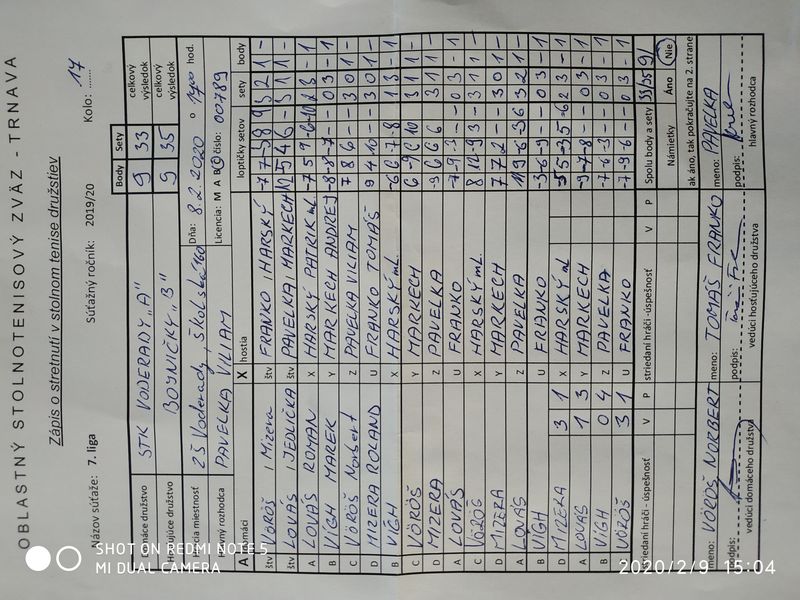 OBLASTNÝ STOLNOTENISOVÝ ZVÄZ - TRNAVA
Zápis o stretnutí v stolnom tenise družstiev
Názov súťaže: 7. liga Súťažný ročník: 2019/20 Kolo: 17
Body Sety
STK VODERADY „A" 9 33 celkový výsledok
BOJNIČKY „B" 9 35 celkový výsledok
ZŠ Voderady, Školská 160 Dňa: 8.2.2020 o hod.
PAVELKA VILIAM Licencia: M A B C číslo: 00789
A X hostia loptičky setov sety body
štv VÖRÖŠ / Mizera štv FRANKO HARSKÝ
štv LOVÁŠ / JEDLIČKA štv PAVELKA MARKECH
A LOVÁŠ ROMAN X HARSKÝ PATRIK ml.
B VÍGH MAREK Y MARKECH ANDREJ -8 -8 -7 - - 0 3 - 1
C VÖRÖŠ Norbert Z PAVELKA VILIAM 7 8 6 - - 3 0 1 -
D MIZERA ROLAND U FRANKO TOMÁŠ 9 4 10 - - 3 0 1 -
B VÍGH X HARSKÝ ml. -6 6 -7 -8 1 3 - 1
C VÖRÖŠ Y MARKECH 6 -9 6 10 3 1 1 -
D MIZERA Z PAVELKA -9 6 6 6 3 1 1 -
A LOVÁŠ U FRANKO -7 -9 -3 - - 0 3 - 1
C VÖRÖŠ X HARSKÝ ml. 8 12 -9 3 - 3 1 1 -
D MIZERA Y MARKECH 7 7 2 - - 3 0 1 -
A LOVÁS Z PAVELKA 11 -9 6 -3 6 3 2 1
B VÍGH U FRANKO -3 -6 -9 - - 0 3 - 1
D MIZERA 3 1 X HARSKÝ ml 2 3 - 1
A LOVÁS 1 3 Y MARKECH -9 -7 -8 - 0 3 - 1
B VÍGH 0 4 Z PAVELKA -7 -6 -3 - 0 3 - 1
C VÖRÖŠ 3 1 U FRANKO -7 -9 -6 - 0 3 - 1
striedaní hráči - úspešnosť V P striedaní hráči -úspešnosť V P Spolu body a sety 33 35 9 9
Námietky Áno Nie
ak áno, tak pokračujte na 2. strane
meno: VÖRÖŠ NORBERT meno: TOMÁŠ FRANKO meno: PAVELKA
podpis: podpis: podpis:
vedúci domáceho družstva vedúci hosťujúceho družstva hlavný rozhodca
SHOT ON REDMI NOTE 5
MI DUAL CAMERA
2020/2/9 15:04